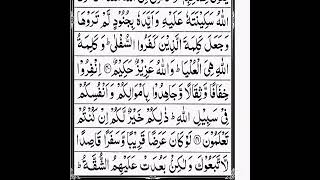 اللّٰهُ سَكِيْنَتَهٗ عَلَيْهِ وَاَيَّدَهٗ بِجُنُوْدٍ لَّمْ تَرَوْهَا
وَجَعَلَ كَلِمَةَ الَّذِيْنَ كَفَرُوا السُّفْلٰى ؕ وَكَلِمَةُ
اللّٰهِ هِيَ الْعُلْيَا ؕ وَاللّٰهُ عَزِيْزٌ حَكِيْمٌ ۝۴۰ اِنْفِرُوْا
خِفَافًا وَّثِقَالًا وَّجَاهِدُوْا بِاَمْوَالِكُمْ وَاَنْفُسِكُمْ
فِيْ سَبِيْلِ اللّٰهِ ؕ ذٰلِكُمْ خَيْرٌ لَّكُمْ اِنْ كُنْتُمْ
تَعْلَمُوْنَ ۝۴۱ لَوْ كَانَ عَرَضًا قَرِيْبًا وَّسَفَرًا قَاصِدًا
لَّاتَّبَعُوْكَ وَلٰكِنْۢ بَعُدَتْ عَلَيْهِمُ الشُّقَّةُ ؕ